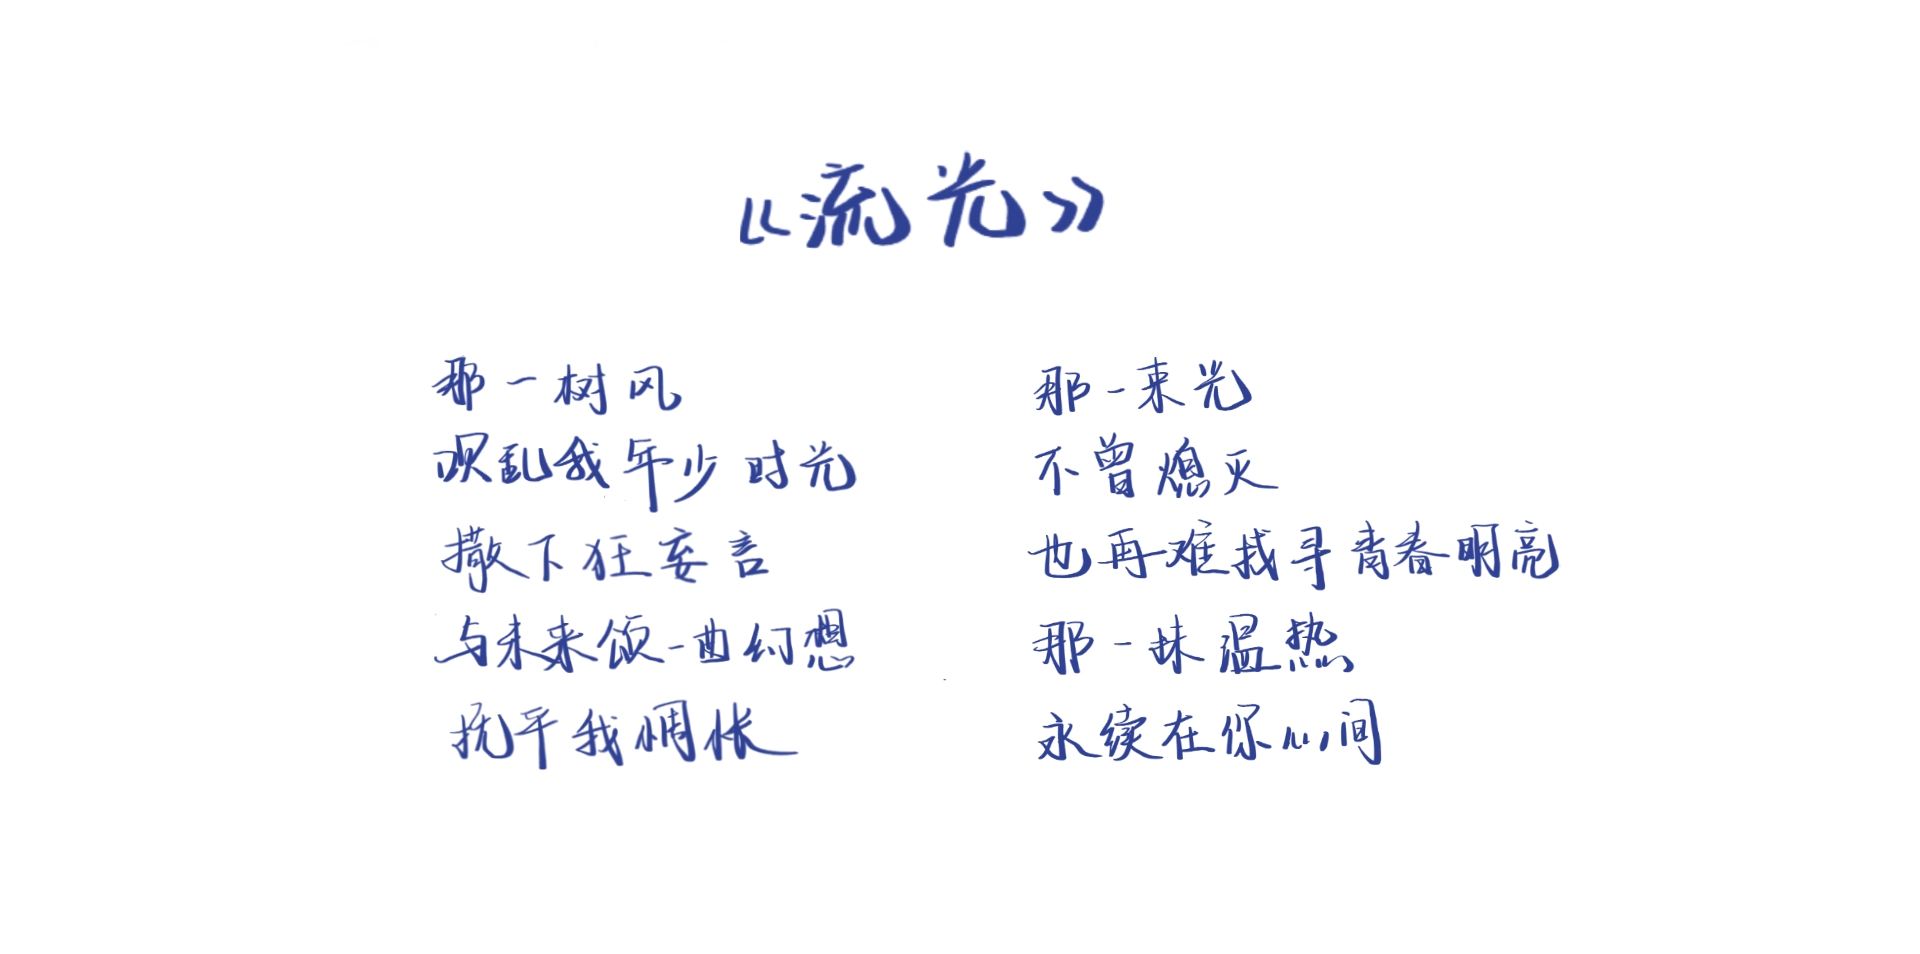 《流光》
那一树风
吹乱我年少时光
撒下狂妄言
与未来颂一曲幻想
抚平我惆怅
那一束光
不曾熄灭
也再难找寻青春明亮
那一抹温热
永续在你心间